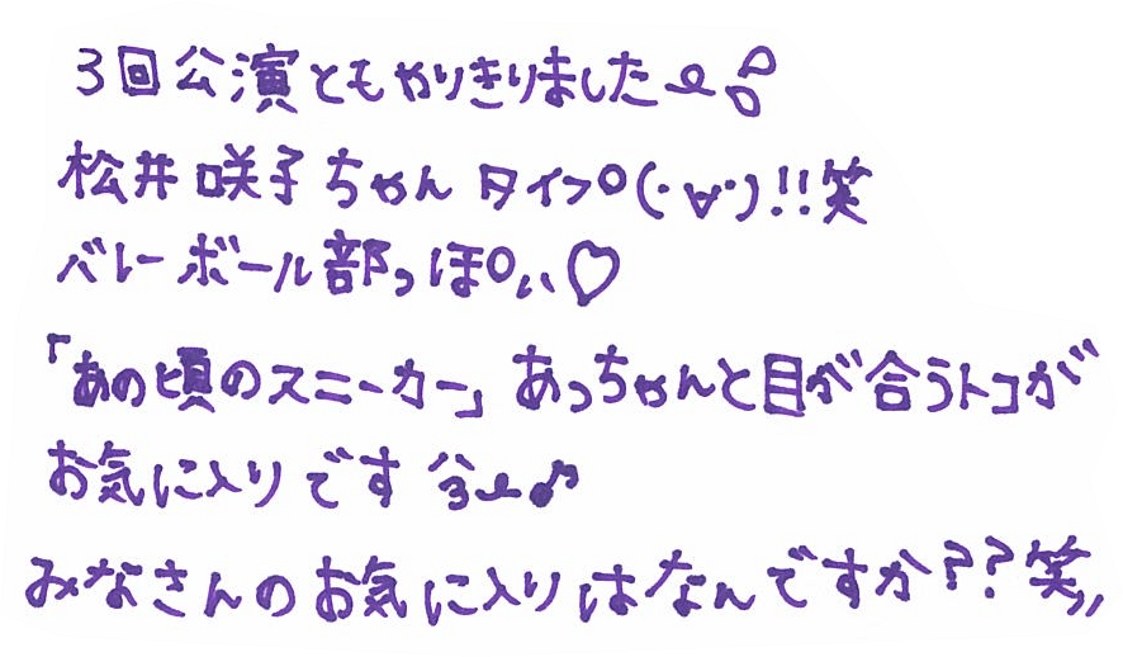 3回公演ともやりきりました
松井咲子ちゃんタイプ(・∀・)!!笑
バレーボール部っぽぃ♡
「あの頃のスニーカー」あっちゃんと目が合うトコが
お気に入りです♪
みなさんのお気に入りはなんですか??笑,,